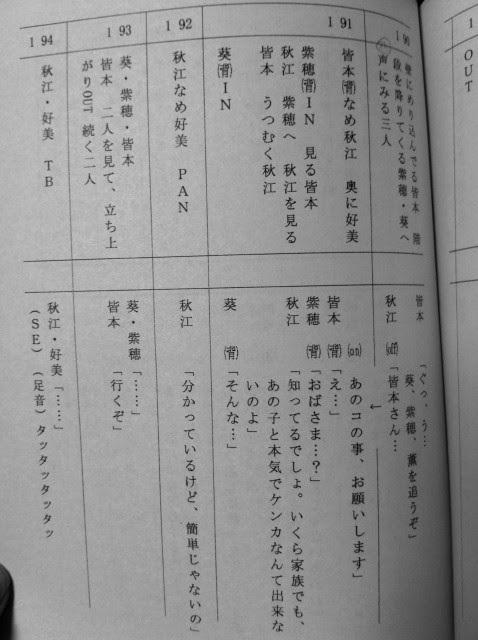 OUT
190
壁にめり込んでる皆本 階
段を降りてくる紫穂・葵へ
声にみる三人
皆本 「ぐっ、う…
葵、紫穂、薫を追うぞ」
秋江 (off) 「皆本さん…
191
皆本(背)なめ秋江 奥に好美
紫穂(背)IN 見る皆本
秋江 紫穂へ 秋江を見る
皆本 うつむく秋江
葵(背)IN
(on) あのコの事、お願いします」
皆本 (背) 「え…」
紫穂 (背) 「おばさま…?」
秋江 「知ってるでしょ。いくら家族でも、
あの子と本気でケンカなんて出来な
いのよ」
葵 (背) 「そんな…」
192
秋江なめ好美 PAN
秋江 「分かっているけど、簡単じゃないの」
193
葵・紫穂・皆本
皆本 二人を見て、立ち上
がりOUT 続く二人
葵・紫穂「……」
皆本 「行くぞ」
194
秋江・好美 TB
秋江・好美「……」
(SE) (足音)タッタッタッタッ